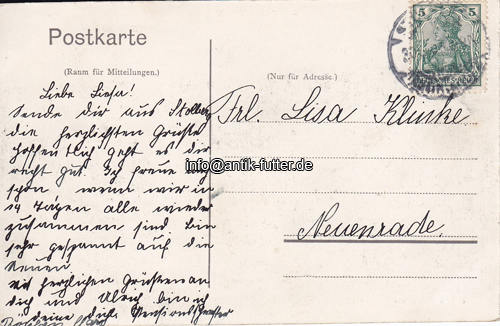 Postkarte
(Raum für Mitteilungen.)
(Nur für Adresse.)
5
Liebe Liesa!
Sende dir aus Stolberg
die herzlichsten Grüße
hoffentlich geht es dir
recht gut. Ich freue mich
schon, wenn wir in
14 Tagen alle wieder
zusammen sind. Bin
sehr gespannt auf die
Neuen.
Mit herzlichen Grüßen an
dich und Ulrich bin ich
deine dich
Frl. Lisa Klinke
Neuenrade.
info@antik-futter.de